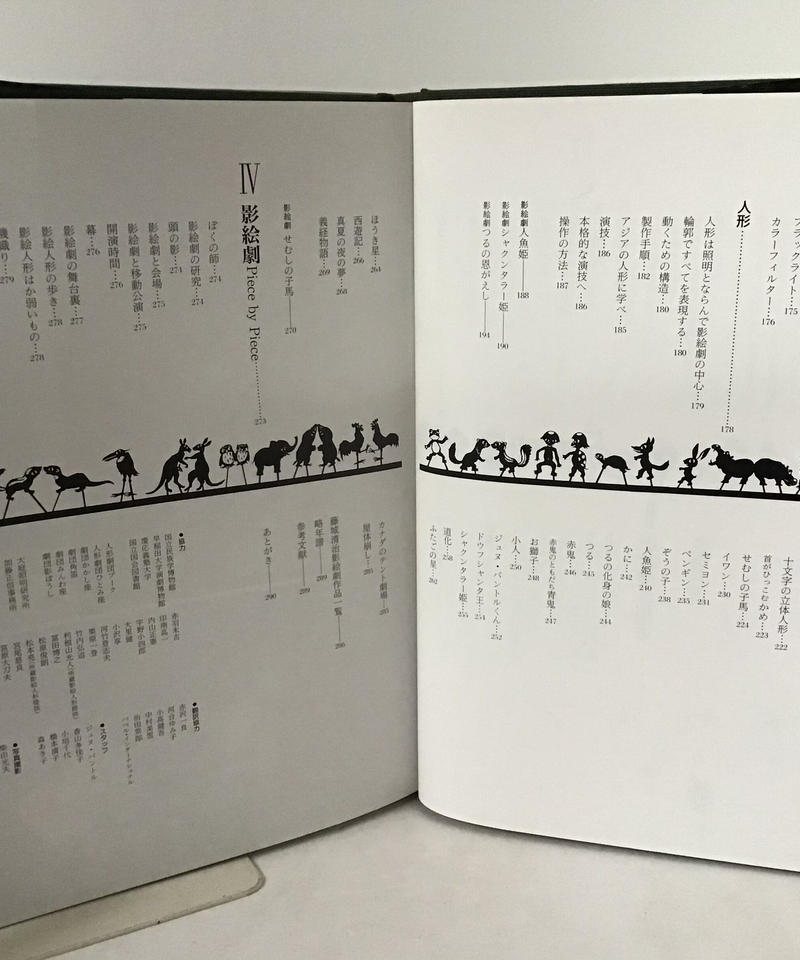 ブラックライト…175
カラーフィルター…176
人形…………178
人形は照明とならんで影絵劇の中心…179
輪郭ですべてを表現する…180
動くための構造…180
製作手順…182
アジアの人形に学べ…185
演技…186
本格的な演技へ…186
操作の方法…187
影絵劇 人魚姫――188
影絵劇 シャクンタラー姫――190
影絵劇 つるの恩がえし――194
十文字の立体人形…222
首がひっこむかめ…223
せむしの子馬…224
イワン…230
セミヨン…231
ペンギン…235
ぞうの子…238
人魚姫…240
かに…242
つるの化身の娘…244
つる…245
赤鬼…246
赤鬼のともだち青鬼…247
お獅子…248
小人…250
ジュヌ・パントルくん…252
ドウフシャンタ王…254
シャクンタラー姫…255
道化…258
ふたごの星…262
ほうき星…264
西遊記…266
真夏の夜の夢…268
義経物語…269
影絵劇 せむしの子馬――270
Ⅳ 影絵劇Piece by Piece…………273
ぼくの師…274
影絵劇の研究…274
頭の影…274
影絵劇と会場…275
影絵劇と移動公演…275
開演時間…276
幕…276
影絵劇の舞台裏…277
影絵人形の歩き…278
影絵人形はか弱いもの…278
機織り…279
カナダのテント劇場…285
屋体崩し…285
藤城清治影絵劇作品一覧――286
略年譜――289
参考文献――289
あとがき――290
●協力
国立民族学博物館
早稲田大学演劇博物館
慶応義塾大学
国立国会図書館
人形劇団プーク
人形劇団ひとみ座
劇団かかし座
劇団角笛
劇団みんわ座
劇団影ぼうし
大庭照明研究所
加藤正信事務所
赤羽末吉
印南高一
内山正憲
宇野小四郎
大里健
小沢享
河竹登志夫
栗原一登
竹内弘道
冨田博之
松原俊朗
宮尾慈良
宮原大刀夫
●翻訳協力
赤沢一良
河合ゆみ子
小高健吾
中村美恵
前田栄郎
バベル・インターナショナル
●スタッフ
ジュヌ・パントル
香山多佳子
小垣千代
橋本満子
森あき子
●写真撮影